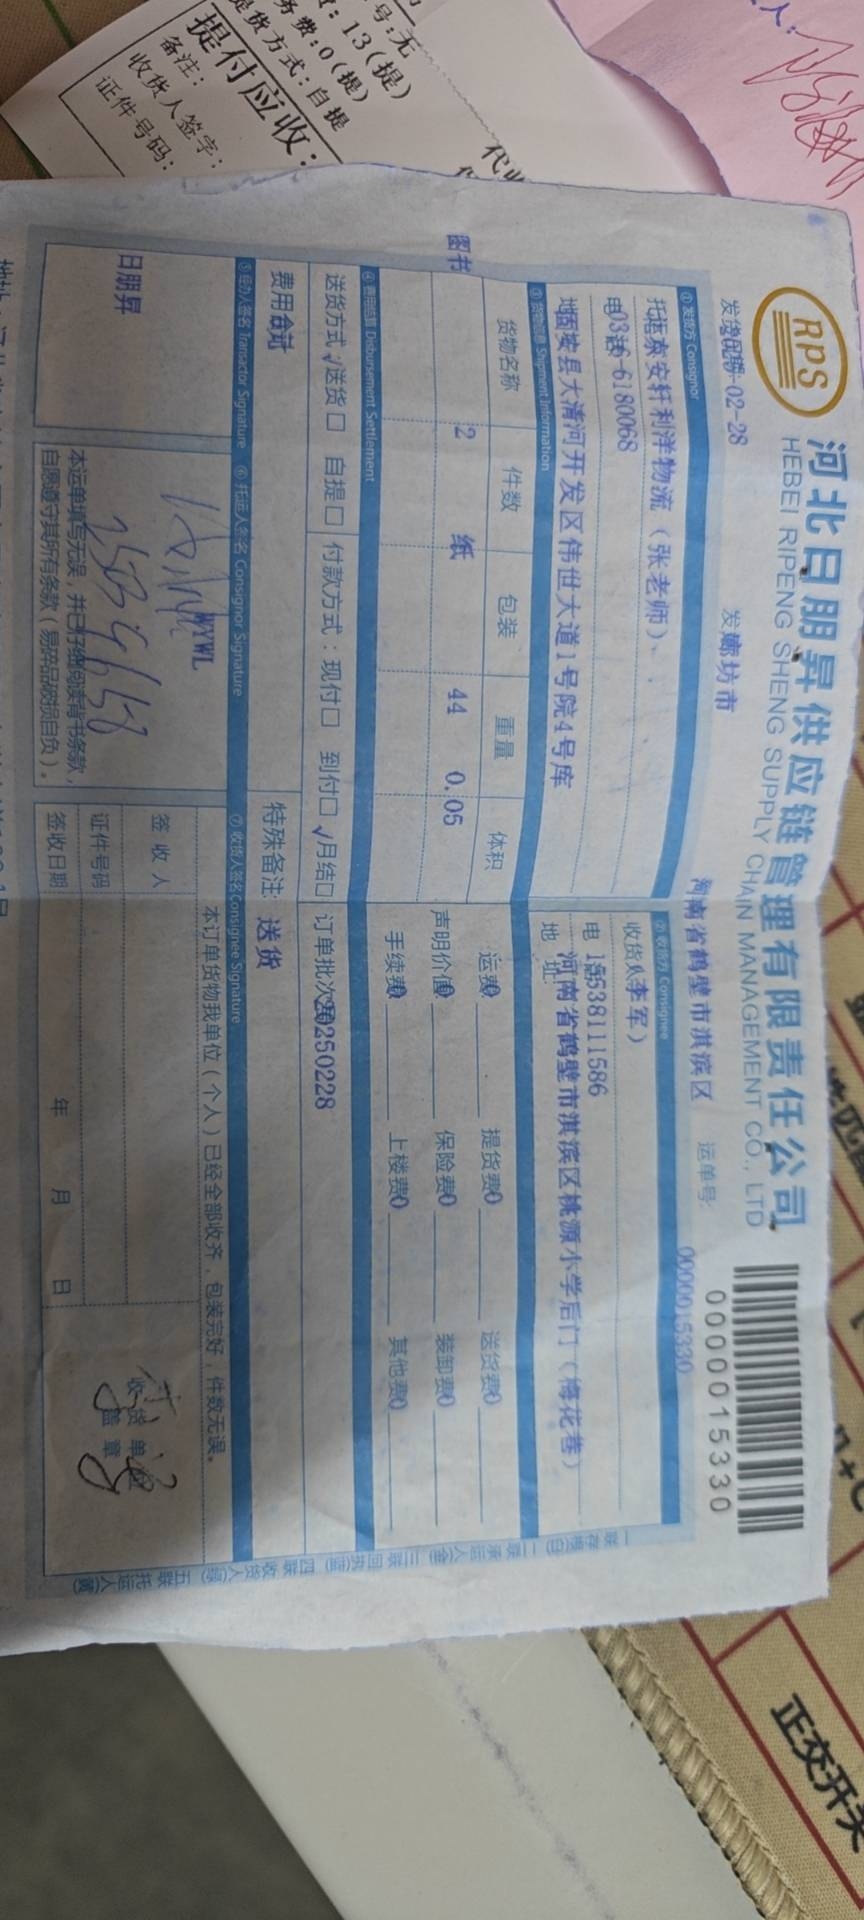 号:无
费:13(提)
务费:0(提)
提货方式:自提
提付应收:
备注:
收货人签字:
证件号码:
代收
人:
RPS
河北日朋昇供应链管理有限责任公司
HEBEI RIPENG SHENG SUPPLY CHAIN MANAGEMENT CO., LTD
0000015330
02-28
廊坊市
河南省鹤壁市淇滨区
运单号:
0000015330
①发货方 Consignor
②收货方 Consignee
轩利洋物流（张老师）、
收货人
李军）
6180068
15538111586
固安县大清河开发区伟世大道1号院4号库
地 址
河南省鹤壁市淇滨区桃源小学后门（梅花巷）
③货物信息 Shipment Information
货物名称 件数 包装 重量 体积
图书 2 纸 44 0.05
运费0 提货费0 送货费0
声明价值0 保险费0 装卸费0
手续费0 上楼费0 其他费0
④费用结算 Disbursement Settlement
送货方式:√送货□ 自提□ 付款方式:现付□ 到付□ √月结□ 订单批次
20250228
费用合计
特殊备注: 送货
⑤经办人签名 Transactor Signature
⑥托运人签名 Consignor Signature
⑦收货人签名 Consignee Signature
日朋昇
WYWL
本运单填写无误，并已仔细阅读背书条款，
自愿遵守其所有条款（易碎品破损自负）。
本订单货物我单位（个人）已经全部收齐，包装完好，件数无误。
签 收 人
证件号码
签收日期
年 月 日
收货单位
盖 章
一联存根(白) 二联承运人(金) 三联回执(蓝) 四联收货人(绿) 五联托运人(黄)
正交开关